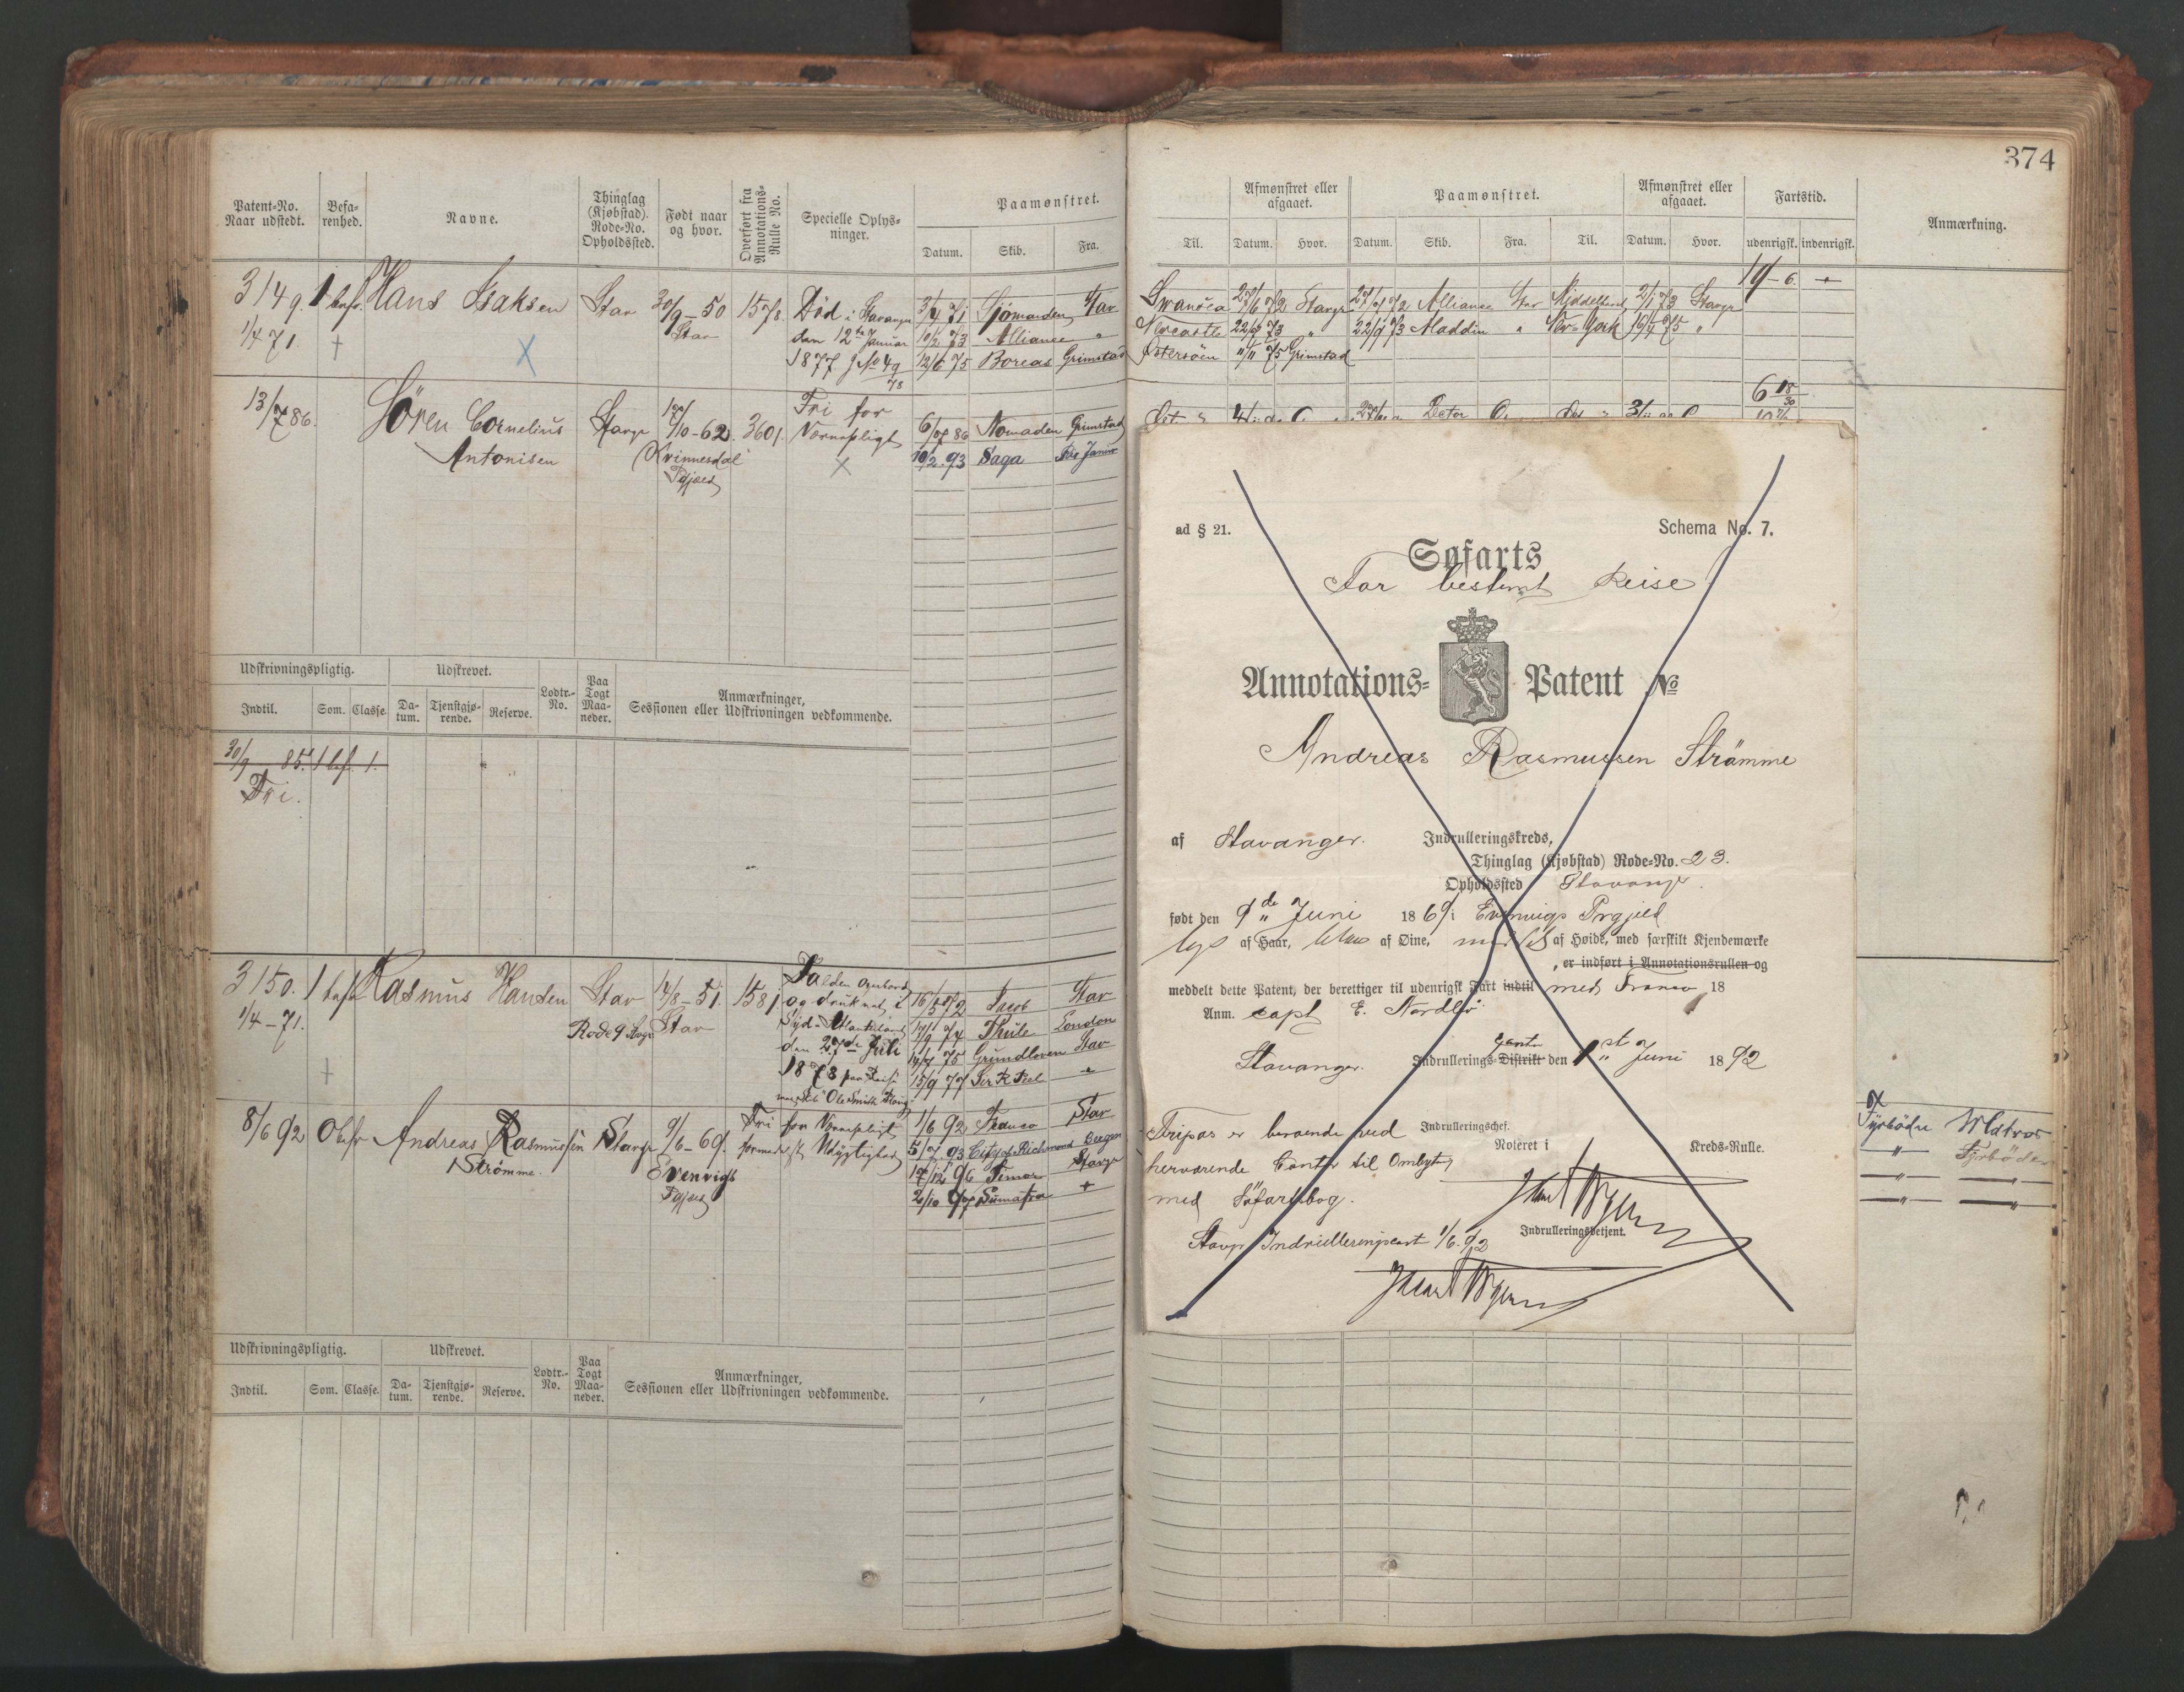 374
Patent-No. Naar udstedt.
Befa- renhed.
Navne.
Thinglag (Kjøbstad). Rode-No. Opholdssted.
Født naar og hvor.
Overført fra Annotations- Rulle No.
Specielle Oplys- ninger.
Paamønstret.
Datum. Skib. Fra.
Til.
Afmønstret eller afgaaet.
Datum. Hvor.
Paamønstret.
Datum. Skib. Fra. Til.
Afmønstret eller afgaaet.
Datum. Hvor.
Fartstid.
udenrigsk. indenrigsk.
Anmærkning.
3149. 1 bef. Hans Isaksen Stav 30/9-50 1578. Død i Stavanger 3/4 71 Sjömanden Stav
1/4 71. † Stav den 12te Januar 10/2 73 Alliance "
1877 J No 49/78 12/6 75 Boreas Grimstad
Swansea 27/6 72 Stavgr Alliance Stav Middelhavet 2/1 73 Stavgr
Newcastle 73 " 22/9 73 Aladdin " New York 75 "
Östersöen 11/11 75 Grimstad
19-6.
13/7 86. Sören Cornelius Stavgr 17/10-62. 3601. Fri for 6/7 86 Nomaden Grimstad
Antonisen Kvinnesdal Værnepligt 10/2 93 Saga Rio Janiro
Pgjæld
6 18/30
Udskrivningspligtig. Udskrevet. Lodtr.- No. Paa Togt Maa- neder. Anmærkninger, Sessionen eller Udskrivningen vedkommende.
Indtil. Som. Classe. Da- tum. Tjenstgjø- rende. Reserve.
30/9 85. 1 bef. 1.
Fri.
3150. 1 bef. Rasmus Hansen Stav 14/8-51. 1581. Falden overbord 16/5 72 Jacob Stav
1/4-71. Rode 9 Stavgr Stav og druknet i Thule London
† Syd-Atlanterhavet 75 Grundloven Stav
den 27de Juli 15/9 77 Sir R Peel "
1878 paa Reise
med Skib "Ole Smith Ploug"
8/6 92 Obefr Andreas Rasmussen Stavgr 9/6-69. Fri for Værnepligt 1/6 92 Franco Stav
Strømme. Evenvigs formedelst Udygtighed 5/7 93 City of Richmond Bergen
Pgjæld 17/12 96 Temor Stavgr
2/10 97 Sumatra "
Udskrivningspligtig. Udskrevet. Lodtr.- No. Paa Togt Maa- neder. Anmærkninger, Sessionen eller Udskrivningen vedkommende.
Indtil. Som. Classe. Da- tum. Tjenstgjø- rende. Reserve.
ad § 21. Schema No. 7.
Søfarts
For bestemt Reise
Annotations- Patent No
Andreas Rasmussen Strömme
af Stavanger. Indrulleringskreds,
Thinglag (Kjøbstad) Rode-No. 23.
Opholdssted Stavanger.
født den 9de Juni 1869 i Evenvigs Prgjæld
lys af Haar, blaa af Øine, af Høide, med særskilt Kjendemærke
, er indført i Annotationsrullen og
meddelt dette Patent, der berettiger til udenrigsk Fart indtil med Franco 18
Anm. Capt E.
Stavanger. Indrullerings-Distrikt Contr den 1st Juni 1892
Indrulleringschef.
Tripas er beroende ved Noteret i Kreds-Rulle.
herværende Contor til Ombytng
med Söfartsbog.
Indrulleringsbetjent.
Stavgr Indrulleringscont 1/6.92
Fyrböder Matros
" Fyrböder
" "
" "